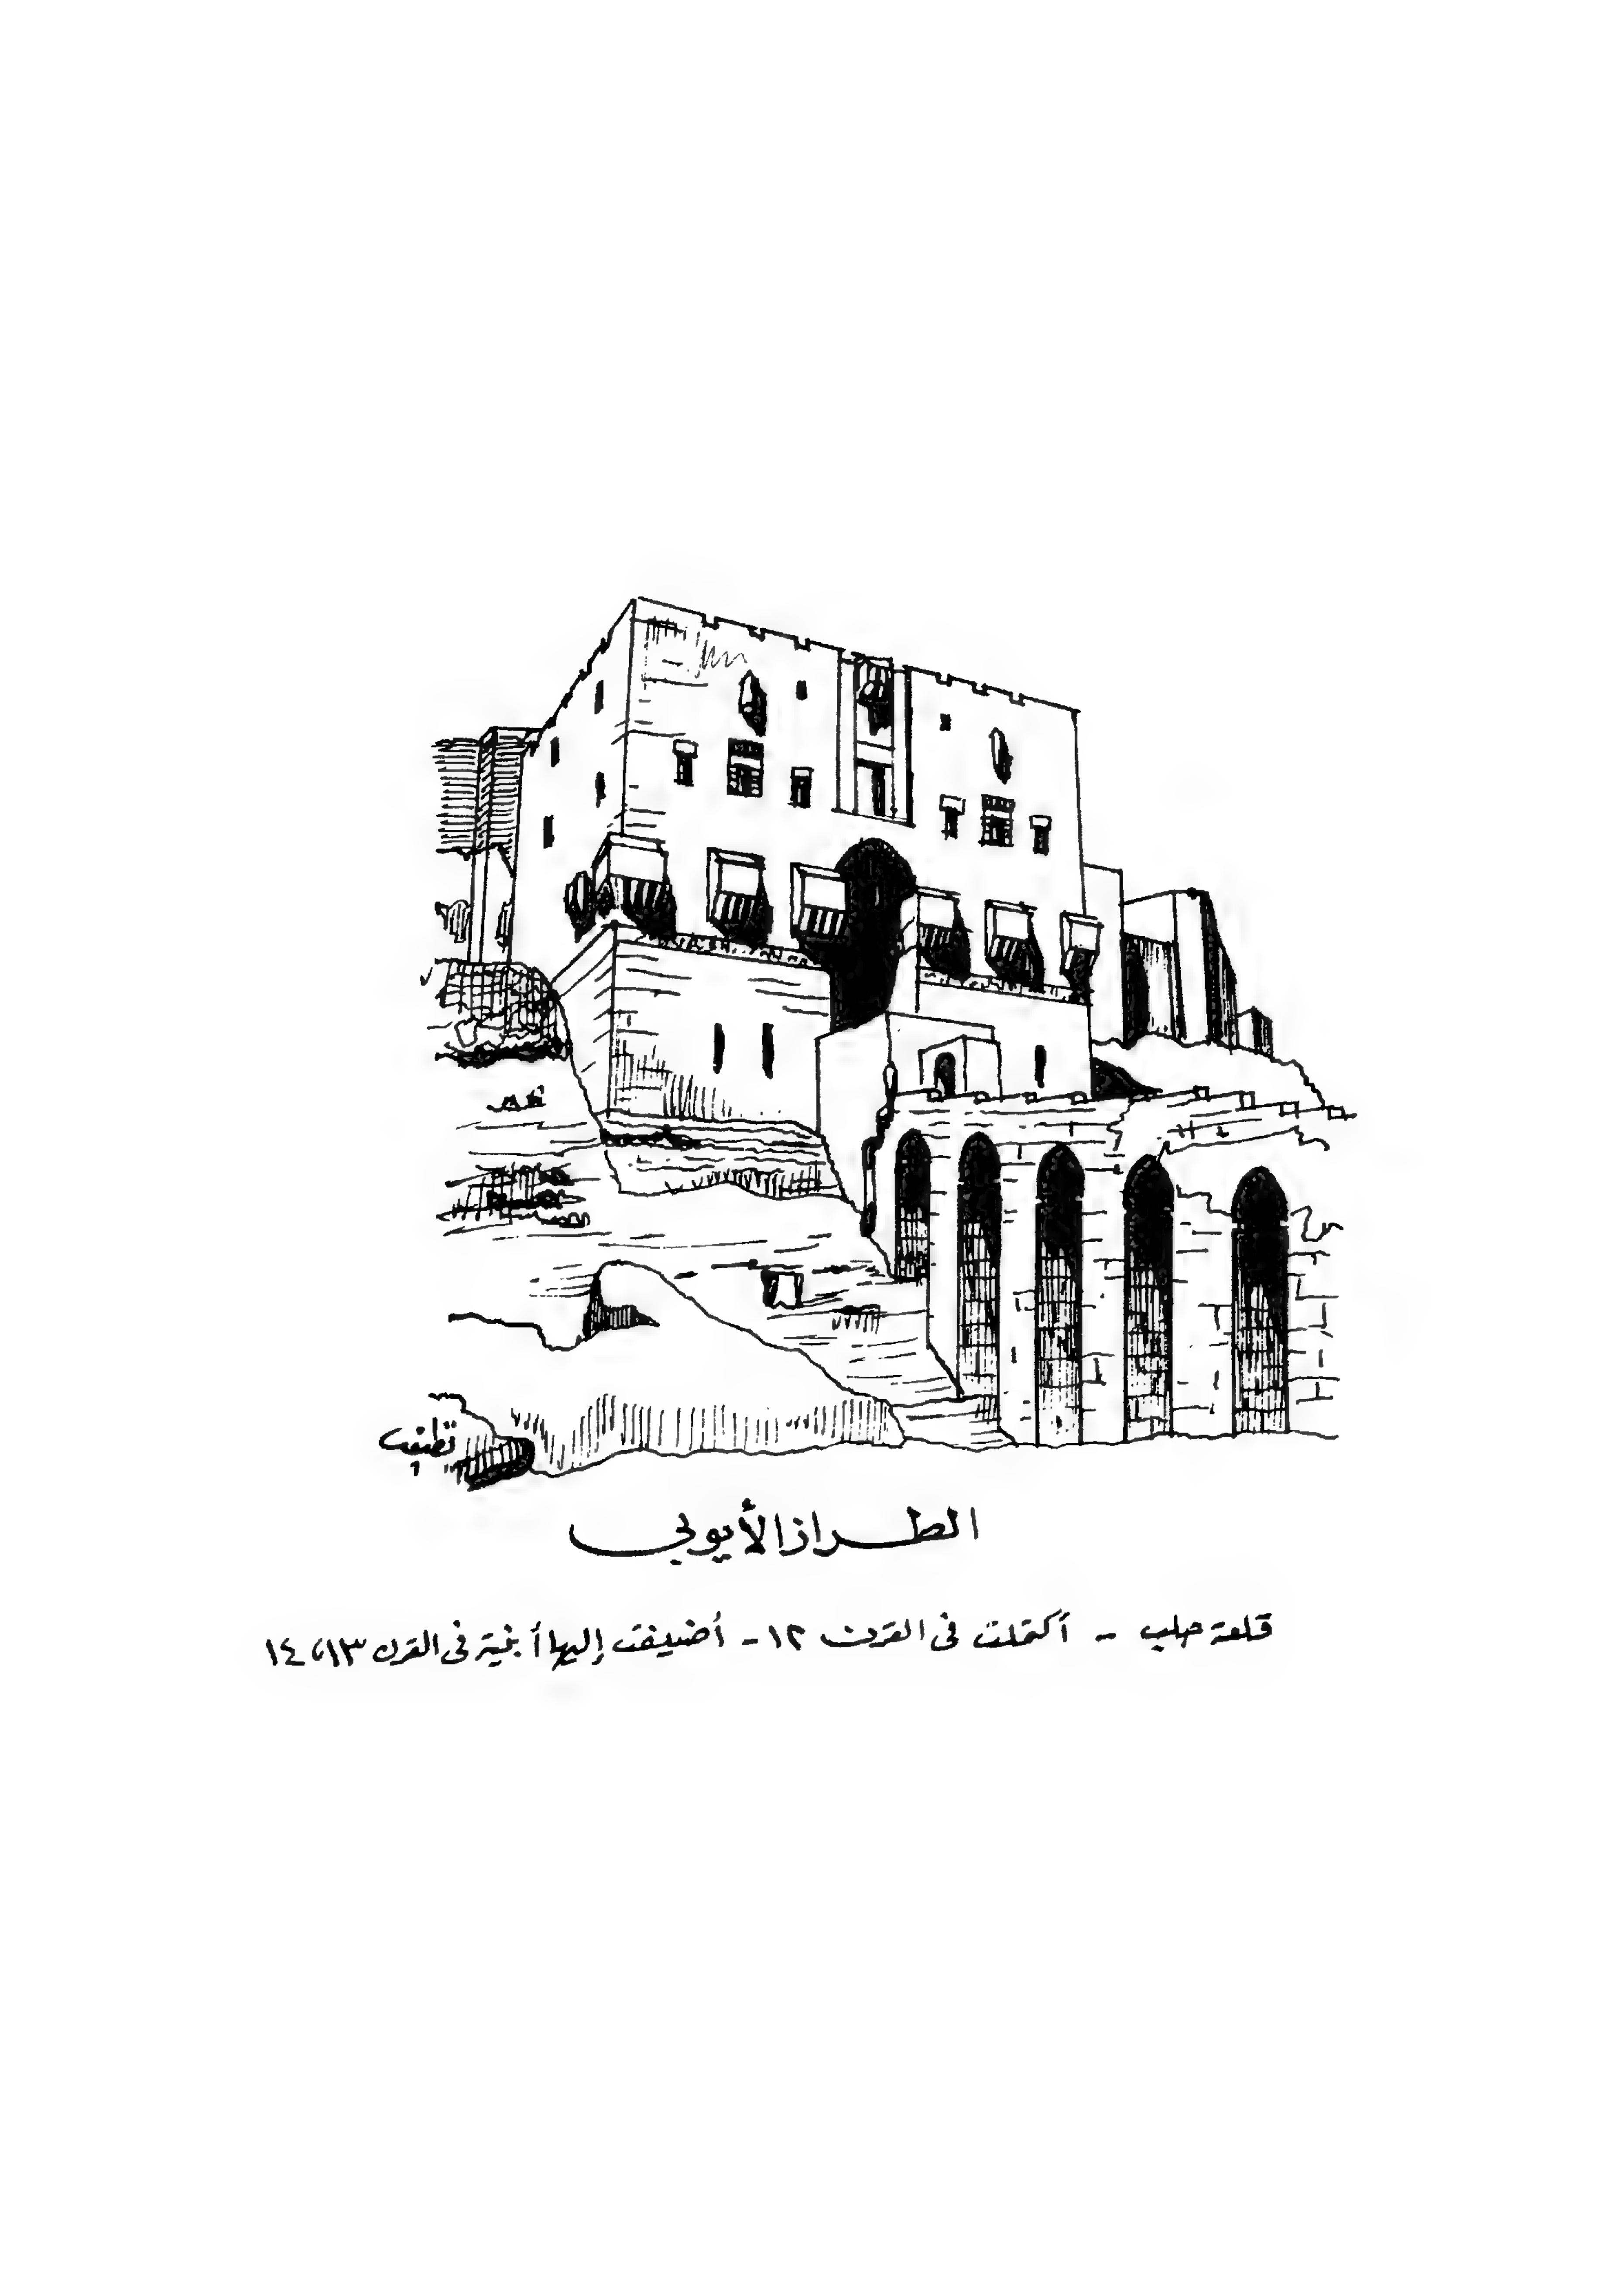 نظيف
الطراز الأيوبي
قلعة حلب - أكتملت فى القرن ١٢ - أضيفت إليها أبنية فى القرن ١٣، ١٤